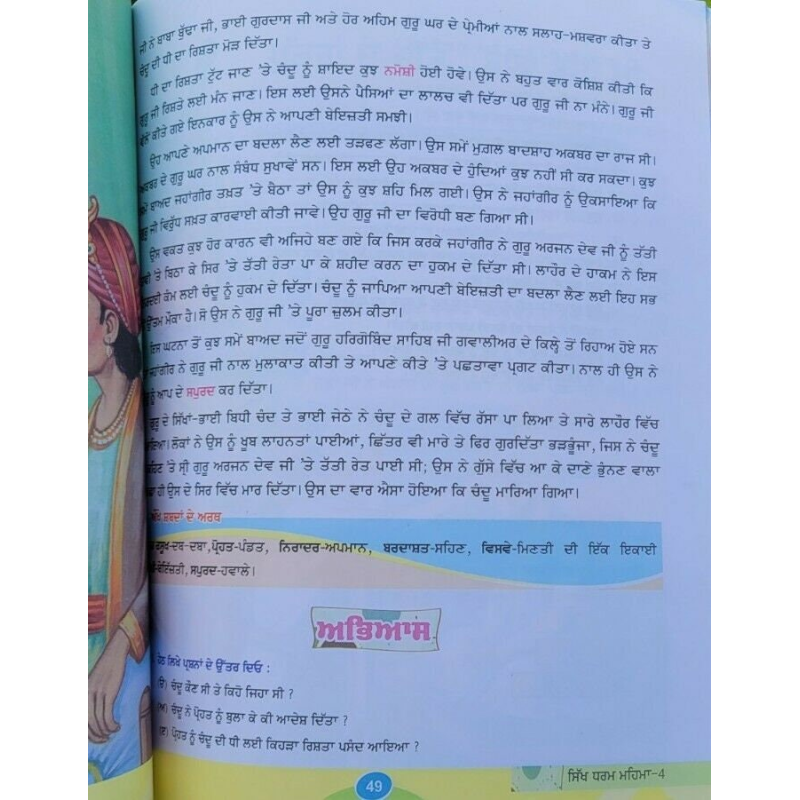 ਜੀ ਨੇ ਬਾਬਾ ਬੁੱਢਾ ਜੀ, ਭਾਈ ਗੁਰਦਾਸ ਜੀ ਅਤੇ ਹੋਰ ਅਹਿਮ ਗੁਰੂ ਘਰ ਦੇ ਪ੍ਰੇਮੀਆਂ ਨਾਲ ਸਲਾਹ-ਮਸ਼ਵਰਾ ਕੀਤਾ ਤੇ
ਚੰਦੂ ਦੀ ਧੀ ਦਾ ਰਿਸ਼ਤਾ ਮੋੜ ਦਿੱਤਾ।
ਧੀ ਦਾ ਰਿਸ਼ਤਾ ਟੁੱਟ ਜਾਣ 'ਤੇ ਚੰਦੂ ਨੂੰ ਸ਼ਾਇਦ ਕੁਝ ਨਮੋਸ਼ੀ ਹੋਈ ਹੋਵੇ। ਉਸ ਨੇ ਬਹੁਤ ਵਾਰ ਕੋਸ਼ਿਸ਼ ਕੀਤੀ ਕਿ
ਗੁਰੂ ਜੀ ਰਿਸ਼ਤੇ ਲਈ ਮੰਨ ਜਾਣ। ਇਸ ਲਈ ਉਸਨੇ ਪੈਸਿਆਂ ਦਾ ਲਾਲਚ ਵੀ ਦਿੱਤਾ ਪਰ ਗੁਰੂ ਜੀ ਨਾ ਮੰਨੇ। ਗੁਰੂ ਜੀ
ਵੱਲੋਂ ਕੀਤੇ ਗਏ ਇਨਕਾਰ ਨੂੰ ਉਸ ਨੇ ਆਪਣੀ ਬੇਇਜ਼ਤੀ ਸਮਝੀ।
ਉਹ ਆਪਣੇ ਅਪਮਾਨ ਦਾ ਬਦਲਾ ਲੈਣ ਲਈ ਤੜਫਣ ਲੱਗਾ। ਉਸ ਸਮੇਂ ਮੁਗ਼ਲ ਬਾਦਸ਼ਾਹ ਅਕਬਰ ਦਾ ਰਾਜ ਸੀ।
ਅਕਬਰ ਦੇ ਗੁਰੂ ਘਰ ਨਾਲ ਸੰਬੰਧ ਸੁਖਾਵੇਂ ਸਨ। ਇਸ ਲਈ ਉਹ ਅਕਬਰ ਦੇ ਹੁੰਦਿਆਂ ਕੁਝ ਨਹੀਂ ਸੀ ਕਰ ਸਕਦਾ। ਕੁਝ
ਸਮੇਂ ਬਾਅਦ ਜਹਾਂਗੀਰ ਤਖ਼ਤ 'ਤੇ ਬੈਠਾ ਤਾਂ ਉਸ ਨੂੰ ਕੁਝ ਸ਼ਹਿ ਮਿਲ ਗਈ। ਉਸ ਨੇ ਜਹਾਂਗੀਰ ਨੂੰ ਉਕਸਾਇਆ ਕਿ
ਗੁਰੂ ਜੀ ਵਿਰੁੱਧ ਸਖ਼ਤ ਕਾਰਵਾਈ ਕੀਤੀ ਜਾਵੇ। ਉਹ ਗੁਰੂ ਜੀ ਦਾ ਵਿਰੋਧੀ ਬਣ ਗਿਆ ਸੀ।
ਉਸ ਵਕਤ ਕੁਝ ਹੋਰ ਕਾਰਨ ਵੀ ਅਜਿਹੇ ਬਣ ਗਏ ਕਿ ਜਿਸ ਕਰਕੇ ਜਹਾਂਗੀਰ ਨੇ ਗੁਰੂ ਅਰਜਨ ਦੇਵ ਜੀ ਨੂੰ ਤੱਤੀ
'ਤੇ ਬਿਠਾ ਕੇ ਸਿਰ 'ਤੇ ਤੱਤੀ ਰੇਤਾ ਪਾ ਕੇ ਸ਼ਹੀਦ ਕਰਨ ਦਾ ਹੁਕਮ ਦੇ ਦਿੱਤਾ ਸੀ। ਲਾਹੌਰ ਦੇ ਹਾਕਮ ਨੇ ਇਸ
ਕੰਮ ਲਈ ਚੰਦੂ ਨੂੰ ਹੁਕਮ ਦੇ ਦਿੱਤਾ। ਚੰਦੂ ਨੂੰ ਜਾਪਿਆ ਆਪਣੀ ਬੇਇਜ਼ਤੀ ਦਾ ਬਦਲਾ ਲੈਣ ਲਈ ਇਹ ਸਭ
ਉੱਤਮ ਮੌਕਾ ਹੈ। ਸੋ ਉਸ ਨੇ ਗੁਰੂ ਜੀ 'ਤੇ ਪੂਰਾ ਜ਼ੁਲਮ ਕੀਤਾ।
ਇਸ ਘਟਨਾ ਤੋਂ ਕੁਝ ਸਮੇਂ ਬਾਅਦ ਜਦੋਂ ਗੁਰੂ ਹਰਿਗੋਬਿੰਦ ਸਾਹਿਬ ਜੀ ਗਵਾਲੀਅਰ ਦੇ ਕਿਲ੍ਹੇ ਤੋਂ ਰਿਹਾਅ ਹੋਏ ਸਨ
ਜਹਾਂਗੀਰ ਨੇ ਗੁਰੂ ਜੀ ਨਾਲ ਮੁਲਾਕਾਤ ਕੀਤੀ ਤੇ ਆਪਣੇ ਕੀਤੇ 'ਤੇ ਪਛਤਾਵਾ ਪ੍ਰਗਟ ਕੀਤਾ। ਨਾਲ ਹੀ ਉਸ ਨੇ
ਨੂੰ ਆਪ ਦੇ ਸਪੁਰਦ ਕਰ ਦਿੱਤਾ।
ਗੁਰੂ ਦੇ ਸਿੱਖਾਂ-ਭਾਈ ਬਿਧੀ ਚੰਦ ਤੇ ਭਾਈ ਜੇਠੇ ਨੇ ਚੰਦੂ ਦੇ ਗਲ ਵਿੱਚ ਰੱਸਾ ਪਾ ਲਿਆ ਤੇ ਸਾਰੇ ਲਾਹੌਰ ਵਿੱਚ
ਲੋਕਾਂ ਨੇ ਉਸ ਨੂੰ ਖੂਬ ਲਾਹਨਤਾਂ ਪਾਈਆਂ, ਛਿੱਤਰ ਵੀ ਮਾਰੇ ਤੇ ਫਿਰ ਗੁਰਦਿੱਤਾ ਭੜਭੂੰਜਾ, ਜਿਸ ਨੇ ਚੰਦੂ
'ਤੇ ਸ੍ਰੀ ਗੁਰੂ ਅਰਜਨ ਦੇਵ ਜੀ 'ਤੇ ਤੱਤੀ ਰੇਤ ਪਾਈ ਸੀ; ਉਸ ਨੇ ਗੁੱਸੇ ਵਿੱਚ ਆ ਕੇ ਦਾਣੇ ਭੁੰਨਣ ਵਾਲਾ
ਹੀ ਉਸ ਦੇ ਸਿਰ ਵਿੱਚ ਮਾਰ ਦਿੱਤਾ। ਉਸ ਦਾ ਵਾਰ ਐਸਾ ਹੋਇਆ ਕਿ ਚੰਦੂ ਮਾਰਿਆ ਗਿਆ।
ਸ਼ਬਦਾਂ ਦੇ ਅਰਥ
ਦਬ-ਦਬਾ, ਪ੍ਰੋਹਤ-ਪੰਡਤ, ਨਿਰਾਦਰ-ਅਪਮਾਨ, ਬਰਦਾਸ਼ਤ-ਸਹਿਣ, ਵਿਸਵੇ-ਮਿਣਤੀ ਦੀ ਇੱਕ ਇਕਾਈ
ਸਪੁਰਦ-ਹਵਾਲੇ।
ਅਭਿਆਸ
ਹੇਠ ਲਿਖੇ ਪ੍ਰਸ਼ਨਾਂ ਦੇ ਉੱਤਰ ਦਿਓ :
(ੳ) ਚੰਦੂ ਕੌਣ ਸੀ ਤੇ ਕਿਹੋ ਜਿਹਾ ਸੀ ?
(ਅ) ਚੰਦੂ ਨੇ ਪ੍ਰੋਹਤ ਨੂੰ ਬੁਲਾ ਕੇ ਕੀ ਆਦੇਸ਼ ਦਿੱਤਾ ?
(ੲ) ਪ੍ਰੋਹਤ ਨੂੰ ਚੰਦੂ ਦੀ ਧੀ ਲਈ ਕਿਹੜਾ ਰਿਸ਼ਤਾ ਪਸੰਦ ਆਇਆ ?
49
ਸਿੱਖ ਧਰਮ ਮਹਿਮਾ-4